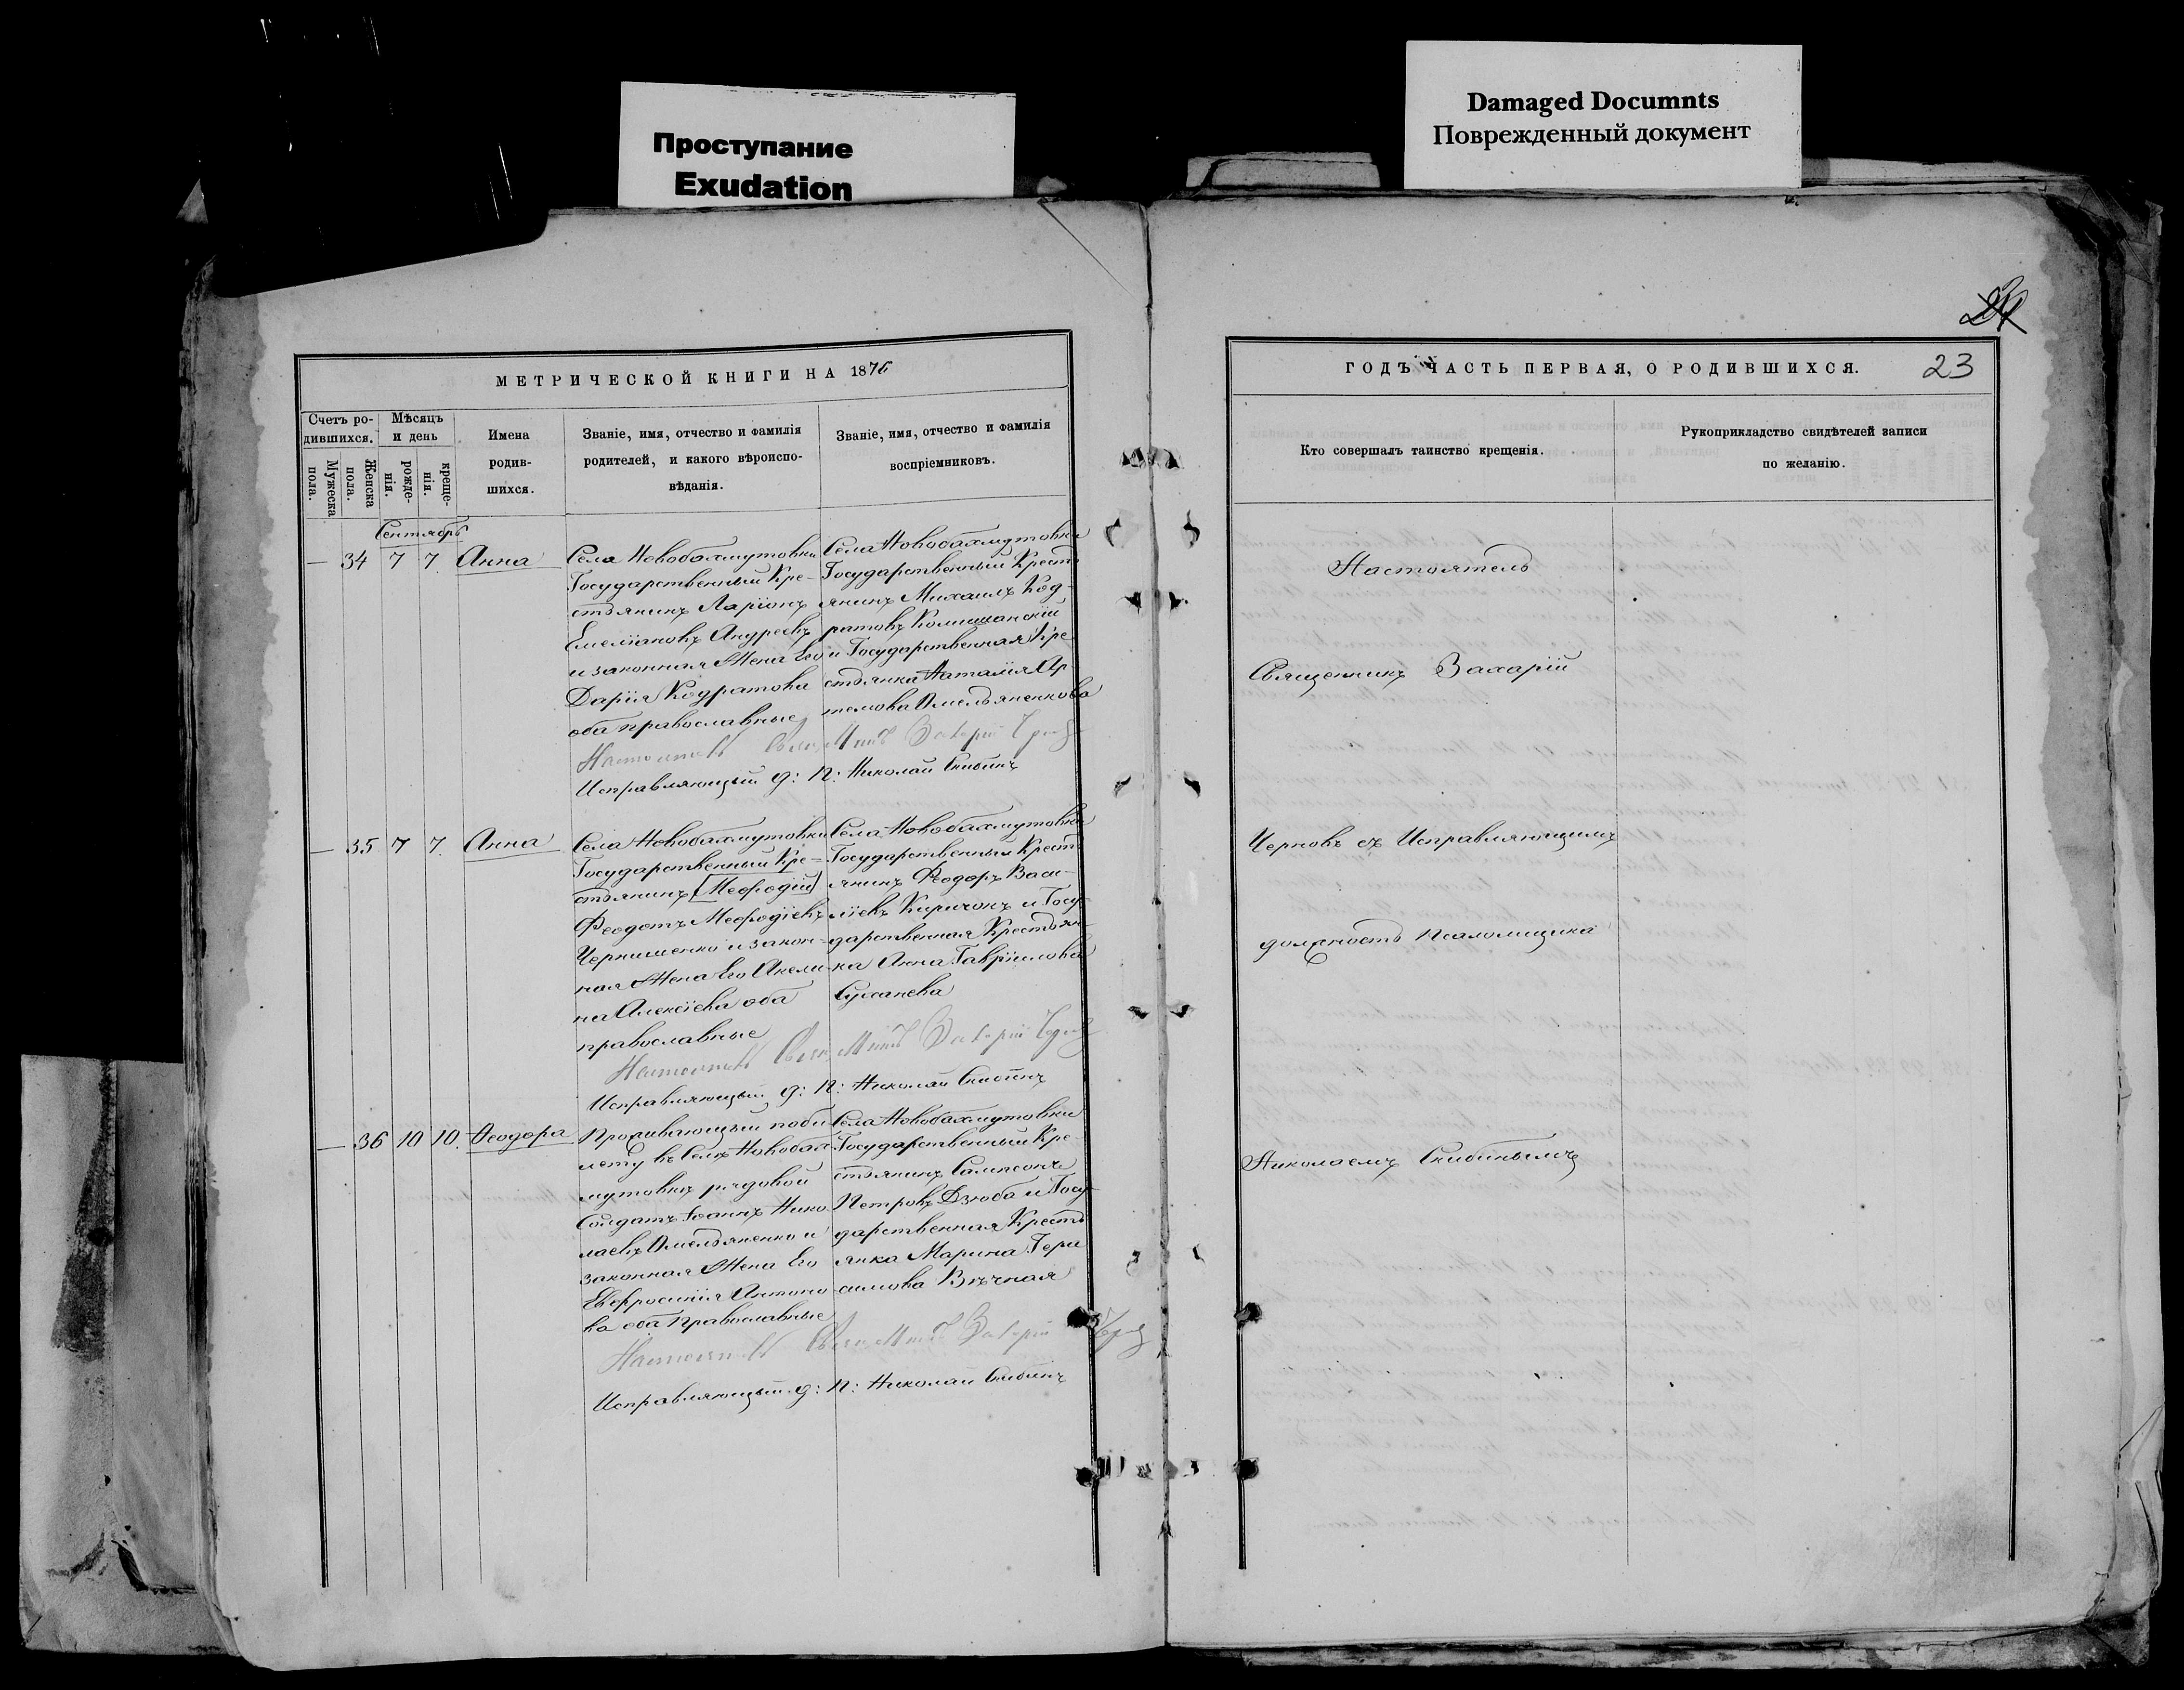 Проступание
Exudation
Damaged Documnts
Поврежденный документ
МЕТРИЧЕСКОЙ КНИГИ НА 1876
Счетъ ро-
дившихся.
Мужеска
пола.
Женска
пола.
Мѣсяцъ
и день
рожде-
нія.
креще-
нія.
Имена
родив-
шихся.
Званіе, имя, отчество и фамилія
родителей, и какого вѣроиспо-
вѣданія.
Званіе, имя, отчество и фамилія
воспріемниковъ.
Сентябрь
— 34 7 7 Анна
Села Новобахмутовки
Государственный Кре-
стьянинъ Ларіонъ
Емеліановъ Андреевъ
и законная Жена Его
Дарія Кодратова
оба православные
Села Новобахмутовки
Государственный Кресть
янинъ Михаилъ Код-
ратовъ
и Государственная Кре
стьянка Наталія Ар
темова Омельяненкова
Исправляющій д: п: Николай Скибинъ
— 35 7 7. Анна
Села Новобахмутовки
Государственный Кре-
стьянинъ [Мефодій]
Феодотъ Мефодіевъ
Чернишенко и закон-
ная Жена Его Акели
на Алексіева оба
православные
Села Новобахмутовки
Государственный Кресть
янинъ Феодоръ Васи-
ліевъ Киричокъ и Госу-
дарственная Крестьян-
ка Анна Гавріилова
Суханева
Исправляющій д: п: Николай Скибинъ
— 36 10 10. Феодора
Проживающій поби
лету въ Селѣ Новобах
мутовкѣ рядовой
Солдатъ Іоаннъ Нико
лаевъ Омельяненко и
законная Жена Его
Евфросинія Антоно
ва оба Православные
Села Новобахмутовки
Государственный Кре-
стьянинъ Сампсонъ
Петровъ Дзюба и Госу-
дарственная Кресть
янка Марина Гера
симова Вѣчная
Исправляющій д: п: Николай Скибинъ
ГОДЪ ЧАСТЬ ПЕРВАЯ, О РОДИВШИХСЯ.
23
Кто совершалъ таинство крещенія.
Рукоприкладство свидѣтелей записи
по желанію.
Настоятель
Священникъ Захарій
Черновъ съ Исправляющимъ
должность псаломщика
Николаемъ Скибинымъ